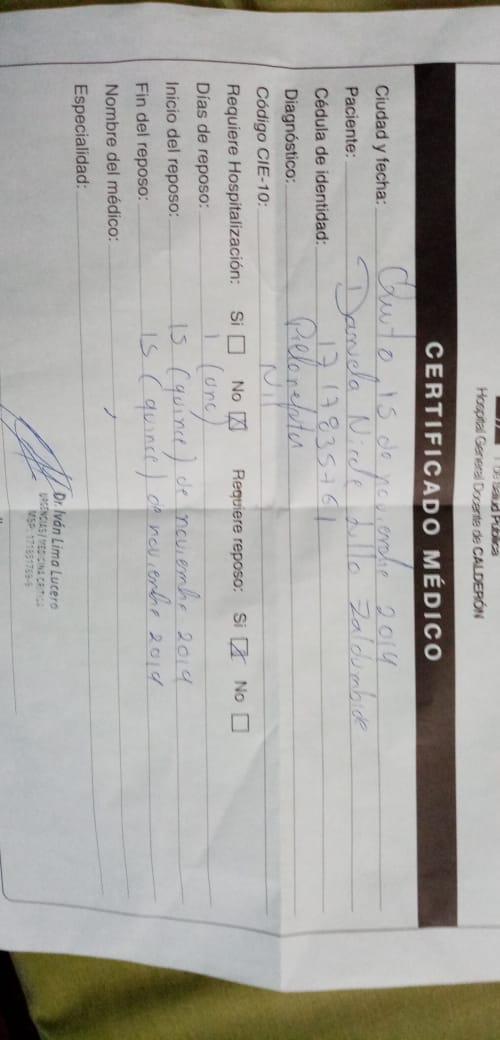 Salud Pública
Hospital General Docente de CALDERÓN
CERTIFICADO MÉDICO
Ciudad y fecha: Quito, 15 de noviembre 2019
Paciente: Daniela Nicole Zaldumbide
Cédula de identidad:
Diagnóstico:
Código CIE-10: N11
Requiere Hospitalización: Si No X Requiere reposo: Si X No
Días de reposo: 1 (uno)
Inicio del reposo: 15 (quince) de noviembre 2019
Fin del reposo: 15 (quince) de noviembre 2019
Nombre del médico:
Especialidad:
Dr. Iván Lima Lucero
URGENCIAS / MEDICINA CRITICA